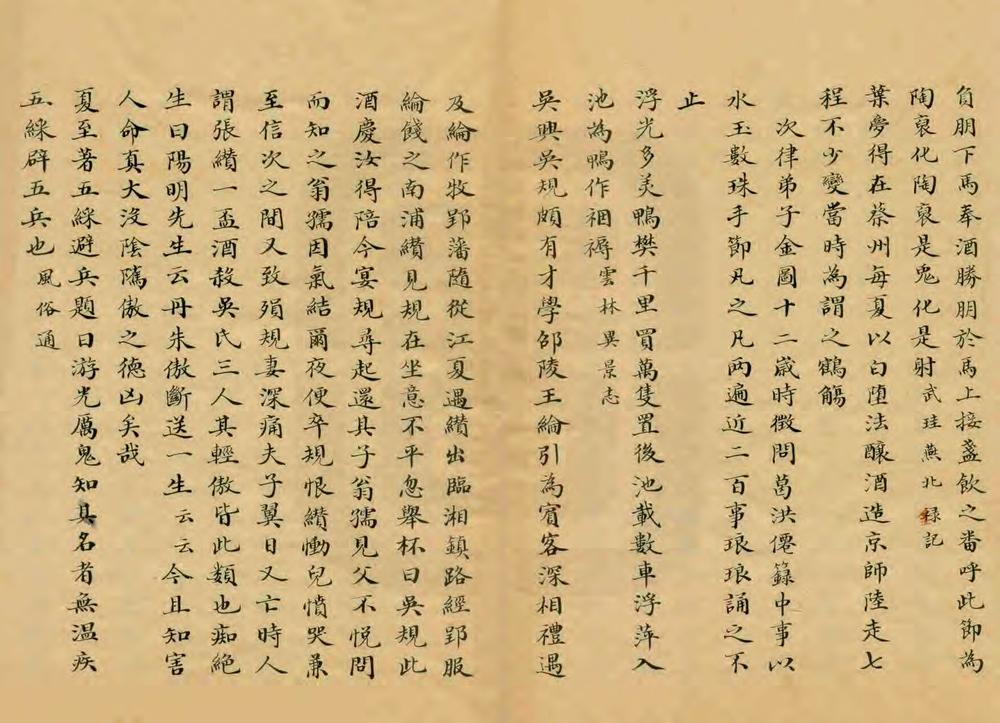 負朋下馬奉酒勝朋於馬上接盞飲之番呼此節為
陶裒化陶裒是兎化是射武珪燕北録記
葉夢得在蔡州每夏以白墮法釀酒造京師陸走七
程不少變當時為謂之鶴觴
次律弟子金圖十二歲時徵問葛洪僊籙中事以
水玉數珠手節凡之凡兩遍近二百事琅琅誦之不
止
浮光多美鴨樊千里買萬隻置後池載數車浮萍入
池為鴨作裀褥雲林異景志
吳興吳規頗有才學邵陵王綸引為賓客深相禮遇
及綸作牧郢藩隨從江夏遇纘出臨湘鎮路經郢服
綸餞之南浦纘見規在坐意不平忽舉杯曰吳規此
酒慶汝得陪今宴規尋起還其子翁孺見父不悅問
而知之翁孺因氣結爾夜便卒規恨纘慟兒憤哭兼
至信次之間又致殞規妻深痛夫子翼日又亡時人
謂張纘一盃酒殺吳氏三人其輕傲皆此類也痴絕
生曰陽明先生云丹朱傲斷送一生云云今且知害
人命真大沒陰隲傲之德凶矣哉
夏至著五綵避兵題曰游光厲鬼知其名者無温疾
五綵辟五兵也風俗通